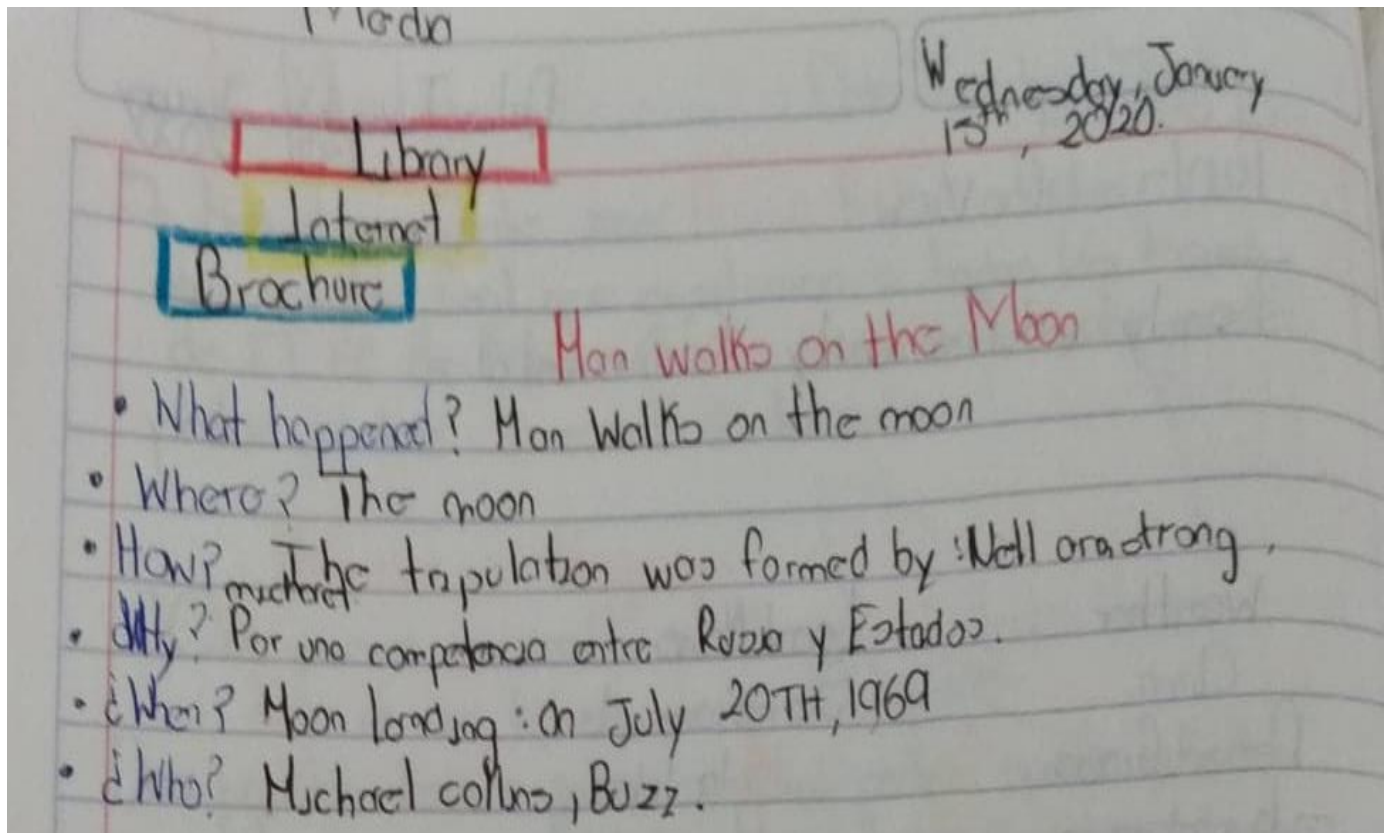 Media
Wednesday, January
15th, 2020.
Library
Internet
Brochure
Man walks on the Moon
• What happened? Man Walks on the moon
• Where? The moon
• How? The tripulation was formed by: Neil armstrong,
• Why? Por una competencia entre Rusia y Estados.
• ¿When? Moon landing: on July 20TH, 1969
• ¿Who? Michael collins, Buzz.